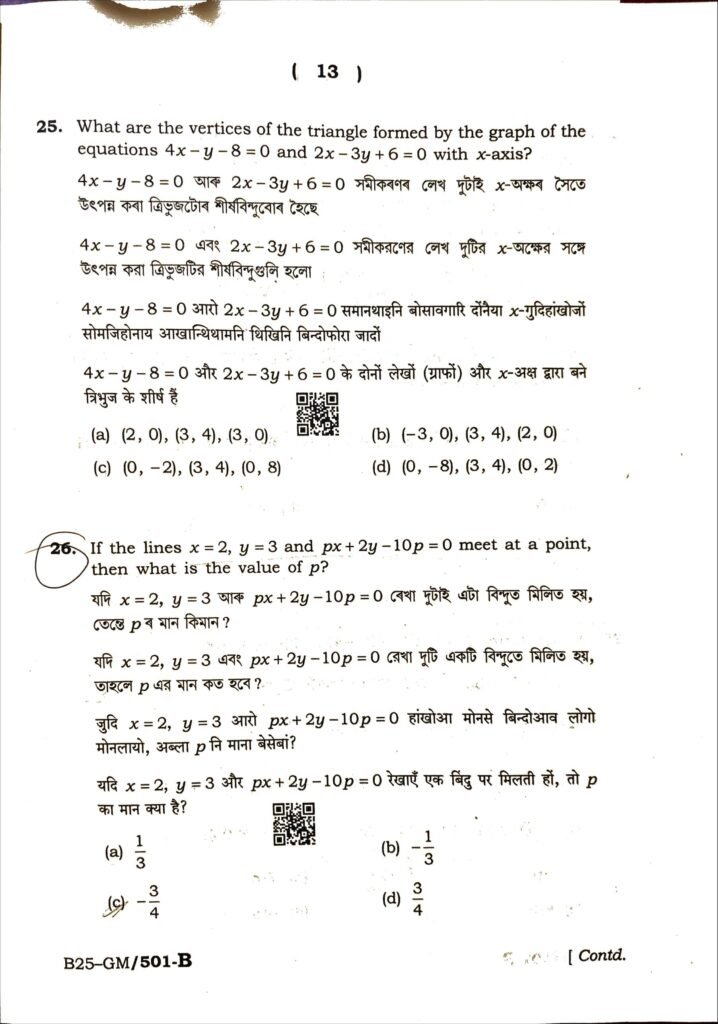 ( 13 )
25. What are the vertices of the triangle formed by the graph of the
equations 4x – y – 8 = 0 and 2x – 3y + 6 = 0 with x-axis?
4x – y – 8 = 0 আৰু 2x – 3y + 6 = 0 সমীকৰণৰ লেখ দুটাই x-অক্ষৰ সৈতে
উৎপন্ন কৰা ত্ৰিভুজটোৰ শীৰ্ষবিন্দুবোৰ হৈছে
4x – y – 8 = 0 এবং 2x – 3y + 6 = 0 সমীকরণের লেখ দুটির x-অক্ষের সঙ্গে
উৎপন্ন করা ত্রিভুজটির শীর্ষবিন্দুগুলি হলো
4x – y – 8 = 0 आरो 2x – 3y + 6 = 0 समानथाइनि बोसावगारि दोंनैया x-गुदिहांखोजों
सोमजिहोनाय आखान्थिथामनि थिखिनि बिन्दोफोरा जादों
4x – y – 8 = 0 और 2x – 3y + 6 = 0 के दोनों लेखों (ग्राफों) और x-अक्ष द्वारा बने
त्रिभुज के शीर्ष हैं
(a) (2, 0), (3, 4), (3, 0) (b) (–3, 0), (3, 4), (2, 0)
(c) (0, –2), (3, 4), (0, 8) (d) (0, –8), (3, 4), (0, 2)
26. If the lines x = 2, y = 3 and px + 2y – 10p = 0 meet at a point,
then what is the value of p?
যদি x = 2, y = 3 আৰু px + 2y – 10p = 0 ৰেখা দুটাই এটা বিন্দুত মিলিত হয়,
তেন্তে p ৰ মান কিমান?
যদি x = 2, y = 3 এবং px + 2y – 10p = 0 রেখা দুটি একটি বিন্দুতে মিলিত হয়,
তাহলে p এর মান কত হবে?
जुदि x = 2, y = 3 आरो px + 2y – 10p = 0 हांखोआ मोनसे बिन्दोआव लोगो
मोनलायो, अब्ला p नि माना बेसेबां?
यदि x = 2, y = 3 और px + 2y – 10p = 0 रेखाएँ एक बिंदु पर मिलती हों, तो p
का मान क्या है?
(a) 1/3 (b) –1/3
(c) –3/4 (d) 3/4
B25–GM/501-B [ Contd.